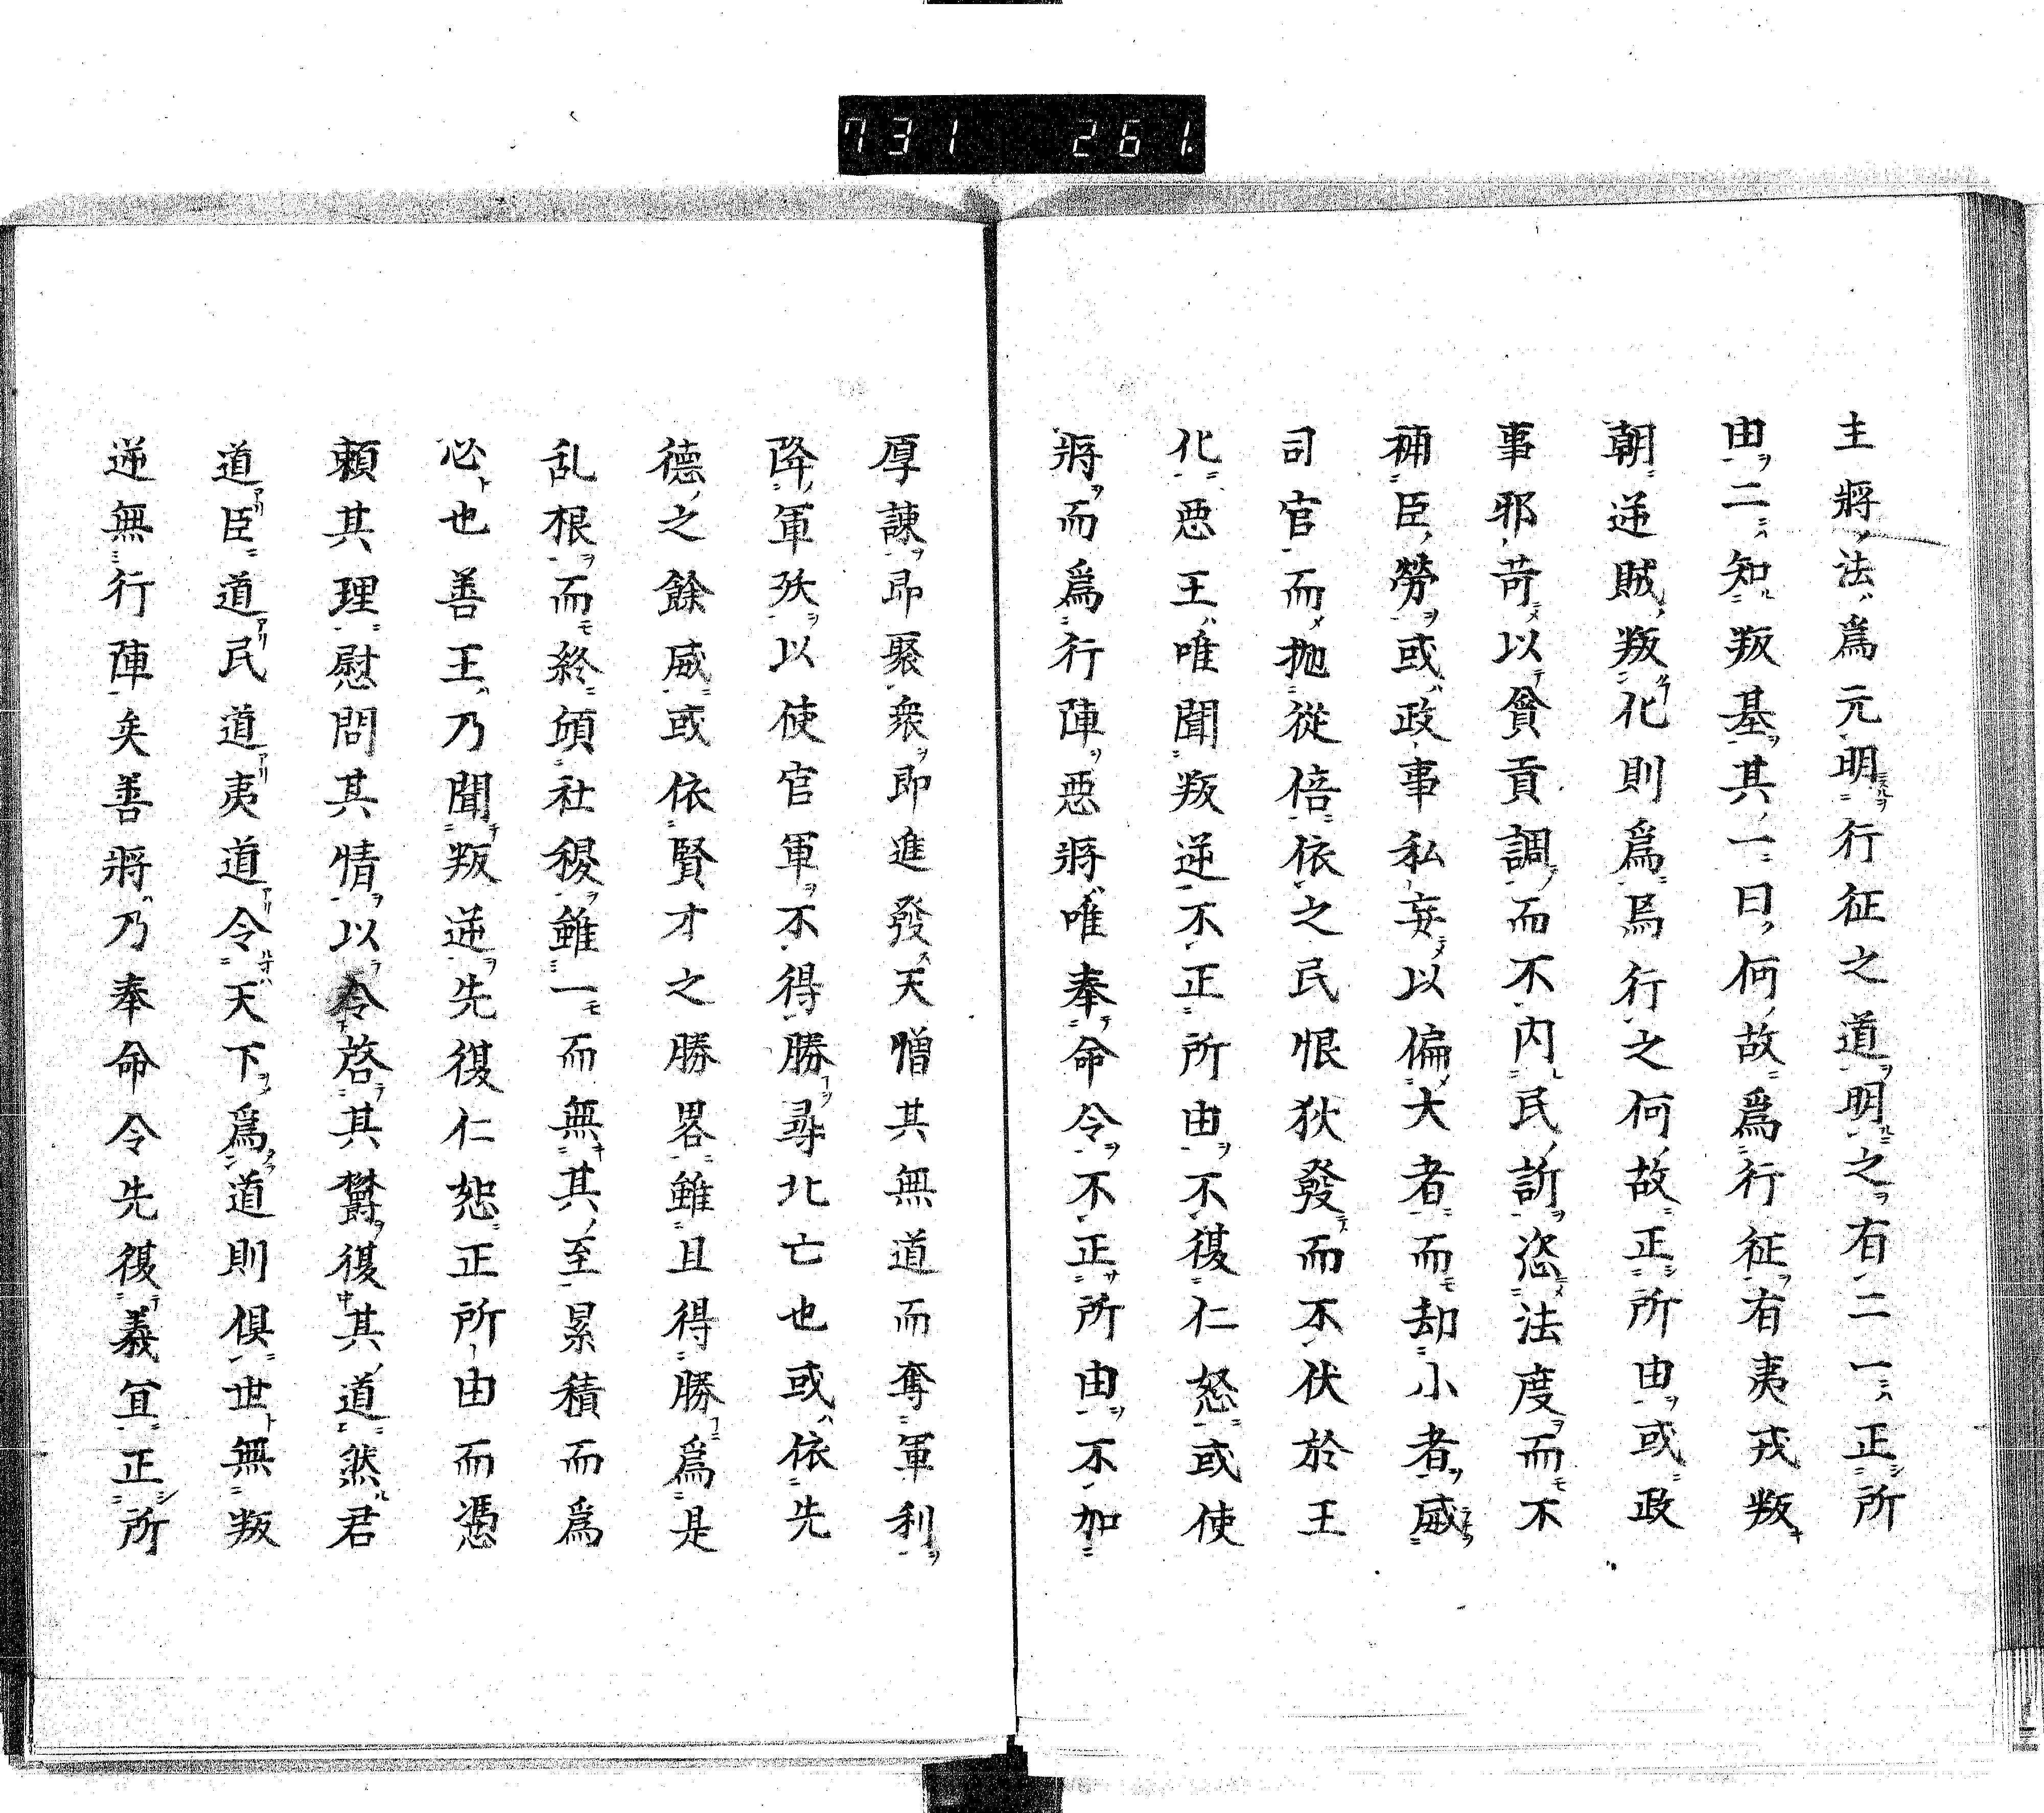 731 261
主將法為元明行征之道明之有二一正所
由二知叛基其一曰何故爲行征有夷戎叛
朝逆賊叛化則爲焉行之何故正所由或政
事邪苛以貪貢調而不内民訴恣法度而不
補臣勞或政事私妄以偏大者而却小者威
司官而抛從倍依之民恨狄發而不伏於王
化惡王唯聞叛逆不正所由不復仁怒或使
將而爲行陣惡將唯奉命令不正所由不加
厚諌即聚衆即進發天憎其無道而奪軍利
降軍殃以使官軍不得勝尋北亡也或依先
德之餘威或依賢才之勝畧雖且得勝爲是
乱根而終傾社稷雖一而無其至累積而爲
必也善王乃聞叛逆先復仁恕正所由而憑
頼其理慰問其情以令啓其欝復其道然君
道臣道民道夷道令天下爲道則倶世無叛
逆無行陣矣善將乃奉命令先復義宜正所